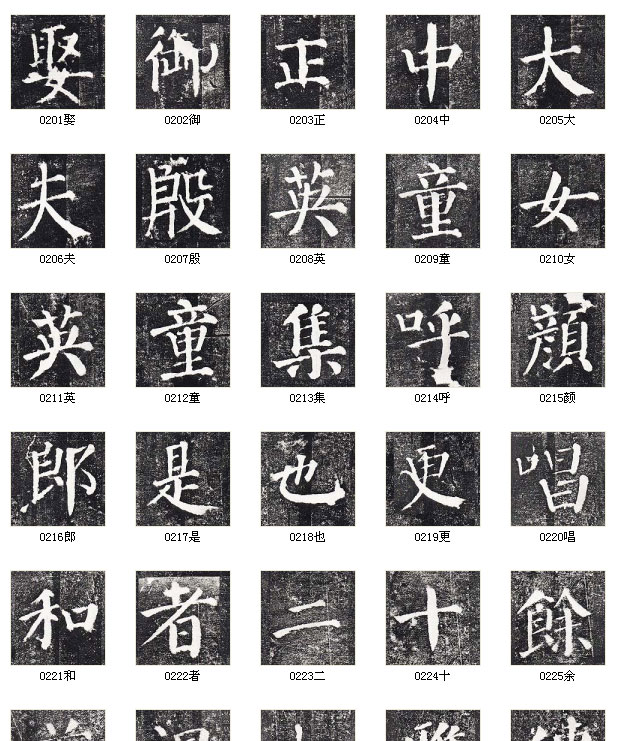 娶 御 正 中 大
0201娶 0202御 0203正 0204中 0205大
夫 殷 英 童 女
0206夫 0207殷 0208英 0209童 0210女
英 童 集 呼 顔
0211英 0212童 0213集 0214呼 0215颜
郎 是 也 更 唱
0216郎 0217是 0218也 0219更 0220唱
和 者 二 十 餘
0221和 0222者 0223二 0224十 0225余